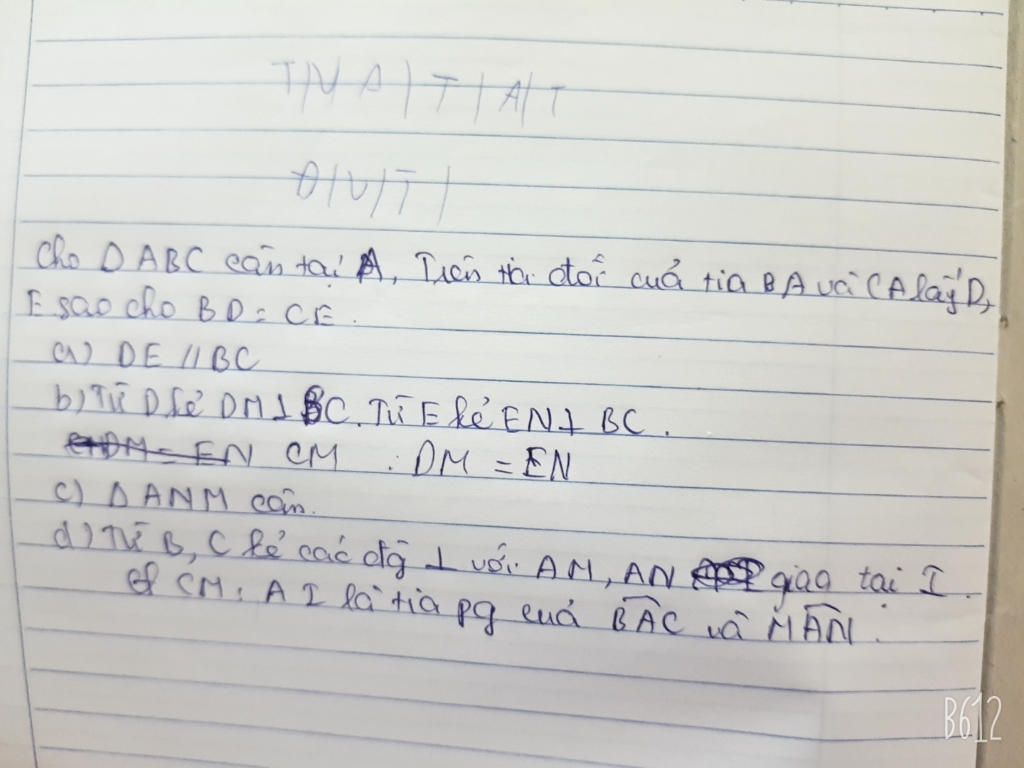 T|V A|T|A|T
Đ|V|T|
Cho Δ ABC cân tại A, Trên tia đối cuả tia BA và CA lấy D,
E sao cho BD = CE.
a) DE // BC
b) Từ D kẻ DM ⊥ BC. Từ E kẻ EN ⊥ BC.
CM : DM = EN
c) Δ ANM cân.
d) Từ B, C kẻ các đg ⊥ với AM, AN giao tại I.
CM: A I là tia pg cuả BAC và MAN.